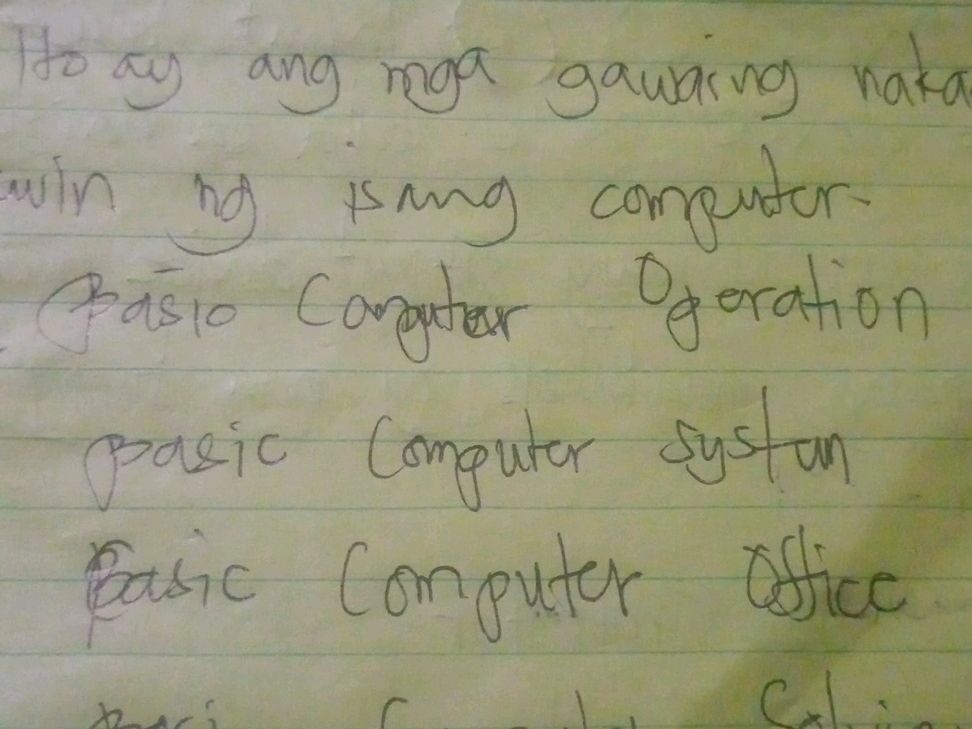 Ito ay ang mga gawaing naka
win ng isang computer.
Basic Computer Operation
Basic Computer System
Basic Computer Office
Basi Com